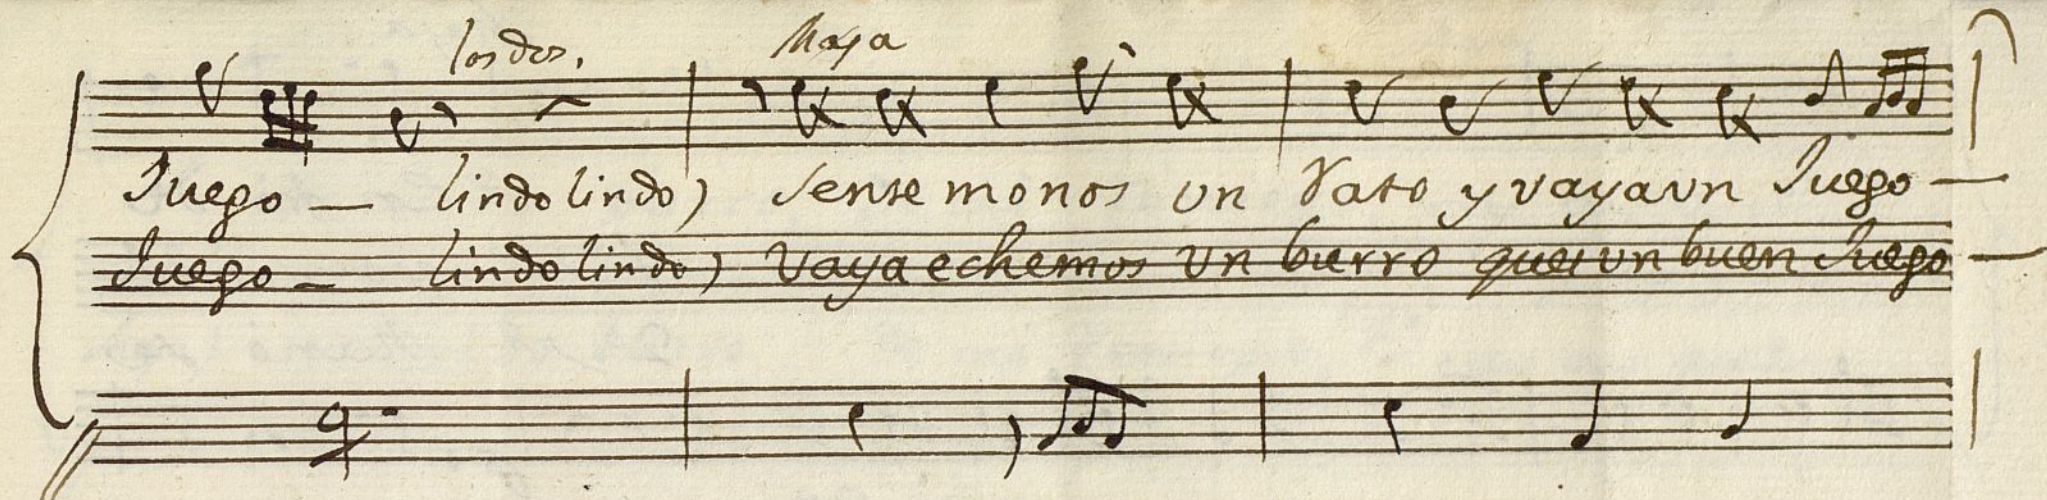 los dos. Maya
Juego — lindo lindo) sentemonos un Rato y vaya un Juego —
Juego — lindo lindo) vaya echemos un burro ques un buen Juego —